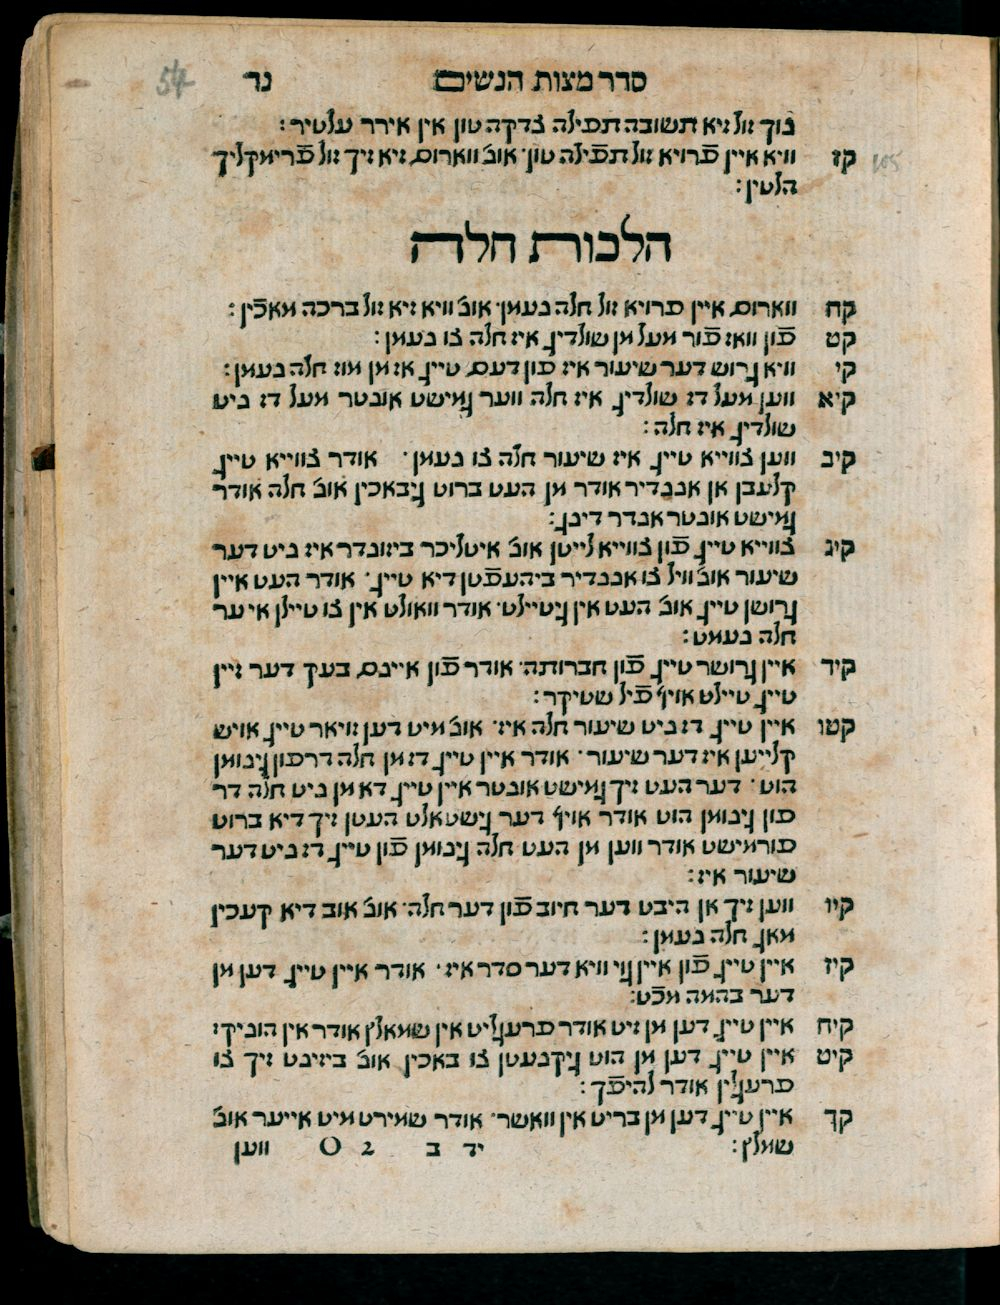 54 סדר מצות הנשים נד
נוך זול זיא תשובה תפילה צדקה טון אין אירר עלטיר:
105 קז וויא איין פֿרויא זול תפֿילה טון· אונ' ווארום זיא זיך זול פֿרימקליך
הלטין:
הלכות חלה
קח ווארום איין פרויא זול חלה נעמן· אונ' וויא זיא זול ברכה מאכֿין:
קט פֿון וואז פֿור מעל מן שולדיג איז חלה צו נעמן:
קי וויא גרוש דער שיעור איז פון דעם טייג אז מן מוז חלה נעמן:
קיא ווען מעל דז שולדיג איז חלה ווער גמישט אונטר מעל דז ניט
שולדיג איז חלה:
קיב ווען צווייא טייג איז שיעור חלה צו נעמן· אודר צווייא טייג
קלעבן אן אננדיר אודר מן העט ברוט גיבאכין אונ' חלה אודר
גמישט אונטר אנדר דינג:
קיג צווייא טייג פֿון צווייא לייטן אונ' איטליכר ביזונדר איז ניט דער
שיעור אונ' וויל צו אננדיר ביהעפֿטן דיא טייג· אודר העט איין
גרושן טייג אונ' העט אין גיטיילט· אודר וואולט אין צו טיילן איער
חלה נעמט:
קיד איין גרושר טייג פֿון חברותה· אודר פֿון איינם בעק דער זיין
טייג טיילט אויף פֿיל שטיקר:
קטו איין טייג דז ניט שיעור חלה איז· אונ' מיט דען זויאר טייג אויש
קלייען איז דער שיעור· אודר איין טייג דז מן חלה דרפון גינומן
הוט· דער העט זיך גמישט אונטר איין טייג דא מן ניט חלה דר
פון גינומן הוט אודר אויף דער גישטאלט העטן זיך דיא ברוט
פורמישט אודר ווען מן העט חלה גינומן פֿון טייג דז ניט דער
שיעור איז:
קיו ווען זיך אן היבט דער חיוב פֿון דער חלה· אונ' אוב דיא קעכין
מאג חלה נעמן:
קיז איין טייג פֿון איין גוי וויא דער סדר איז· אודר איין טייג דען מן
דער בהמה מכֿט:
קיח איין טייג דען מן זיט אודר פרעגליט אין שמאלץ אודר אין הוניק:
קיט איין טייג דען מן הוט גיקנעטן צו באכין אונ' ביזינט זיך צו
פרעגלין אודר להיפֿך:
קך איין טייג דען מן בריט אין וואשר· אודר שמירט מיט אייער אונ'
שמלץ: יד ב O 2 ווען